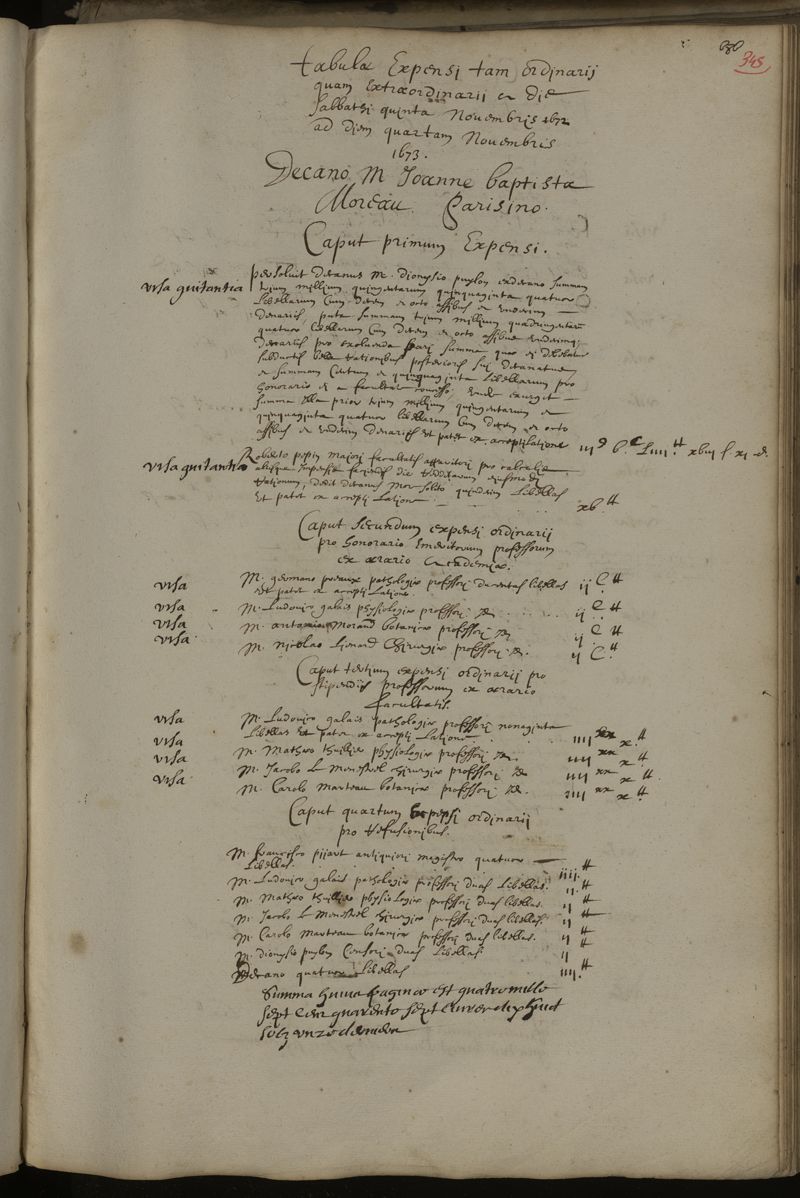 345
tabula Expensi tam ordinarij
quam Extraordinarij a die
sabbathi quinta Novembris 1672
ad diem quartam Novembris
1673.
Decano M Joanne baptista
Moreau Parisino.
Caput primum Expensi.
visa quitantia
persoluit decanus M. dionysio puylon exdecano summam
trium millium quingentarum quinquaginta quatuor
libellarum cum decem et octo assibus et undecim
denariis, puta summam trium millium quadringentarum
quatuor libellarum cum decem et octo assibus undecimque
denariis pro excluenda pari summa quae ei debebatur
subductis rationibus posterioris sui decanatus
et summam centum et quinquaginta libellarum pro
honorario ei a facultate concesso, unde exurget
summa illa prior trium millium quingentarum et
quinquaginta quatuor libellarum cum decem et octo
assibus et undecim denariis ut patet ex acceptilatione iij m b c Liiij tt xviij s xj d.
visa quitantia
Roberto pepin majori facultatis apparitori pro
rationum, dedit decanus more solito quindecim libellas
ut patet ex accepti latione xv tt
Caput secundum expensi ordinarij
pro honorario Emeritorum professorum
ex aerario academiae.
visa M. germano preaux pathologiae professori ducentas libellas ij C tt
ut patet ex accepti latione.
visa M. Ludovico galais physiologiae professori ij C tt
visa M. antonio Morand botanicae professori ij C tt
visa M. nicolao Lienard Chirurgiae professori ij C tt
Caput tertium expensi ordinarij pro
stipendiis professorum ex aerario
facultatis.
visa M. Ludovico galais pathologiae professori nonaginta
libellas ut patet ex accepti latione iiij xx x tt
visa M. Matheo thuillier physiologiae professori iiij xx x tt
visa M. Jacobo Le Menestrel chirurgiae professori iiij xx x tt
visa M. Carolo Marteau botanicae professori iiij xx x tt
Caput quartum Expensi ordinarij
pro refusionibus.
M. francisco pijart antiquiori magistro quatuor
libellas. iiij tt
M. Ludovico galais pathologiae professori duas libellas. ij tt
M. Matheo thuillier physiologiae professori duas libellas. ij tt
M. Jacobo Le Menestrel chirurgiae professori duas libellas. ij tt
M. Carolo Marteau botanicae professori duas libellas. ij tt
M. dionysio puylon Censori duas libellas ij tt
Decano quatuor libellas iiij tt
Summa huius paginae est quatre mille
sept cens quarente sept livres dix huict
solz unze deniers